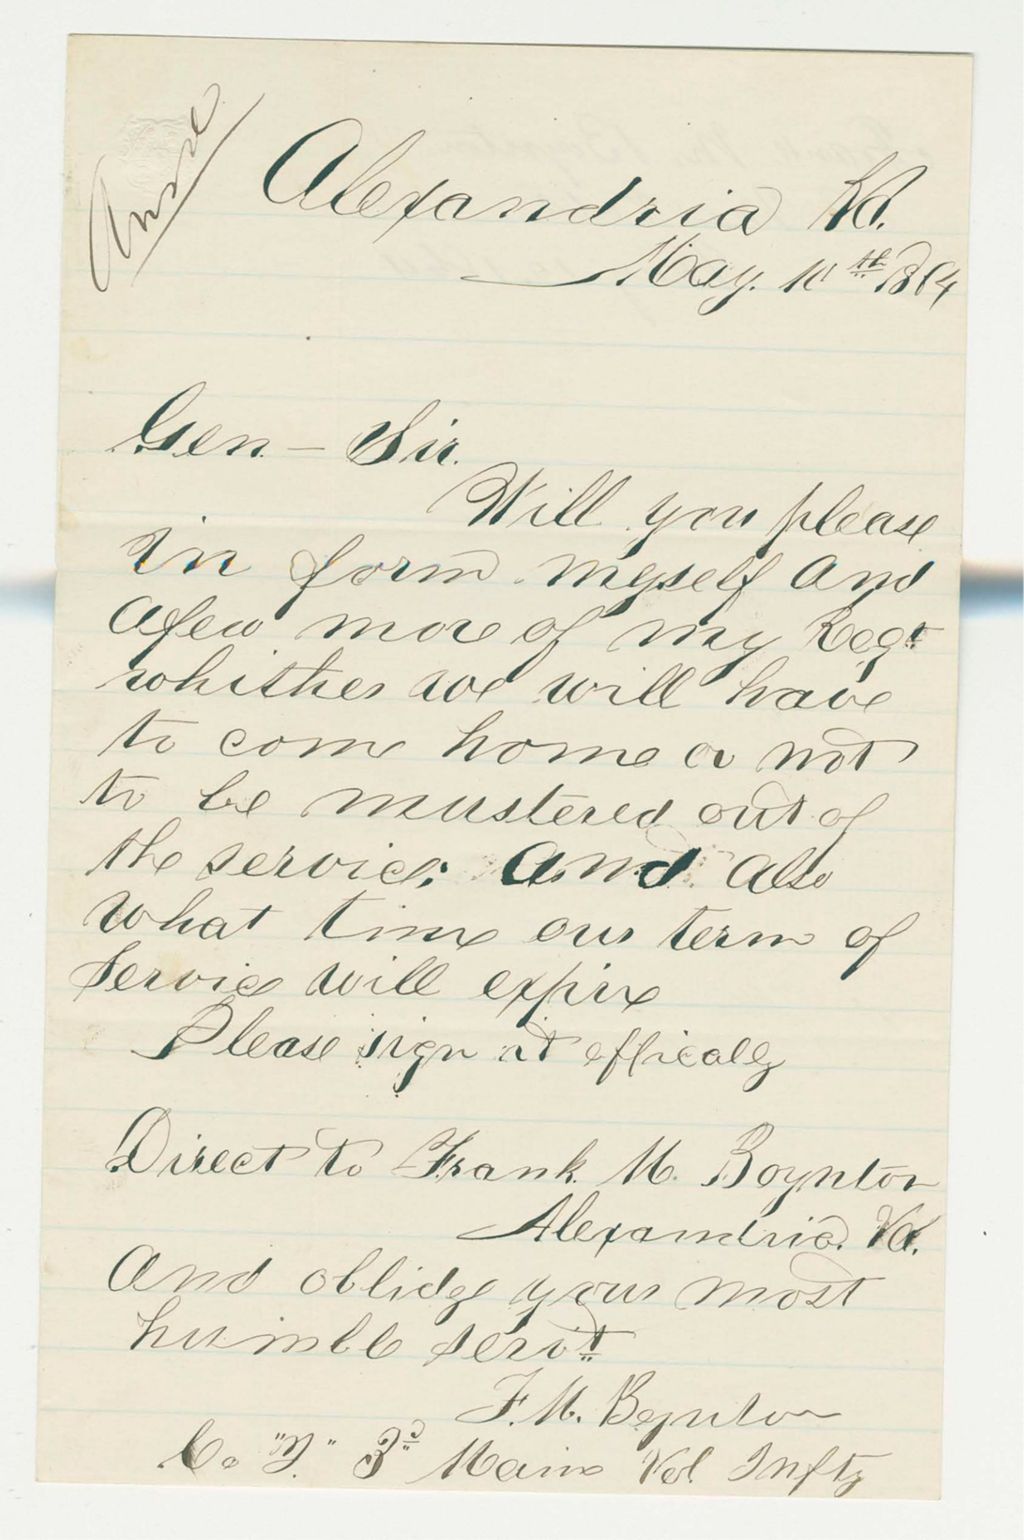 Alexandria Va.
May. 10th 1864
Gen. - Sir.
Will you please
in form myself and
afew more of my Regt
whither we will have
to come home or not
to be mustered out of
the service; And also
what time our term of
Servic will expire
Please sign it efficaly
Direct to Frank. M. Boynton
Alexandria. Va.
And oblidge your most
humble servt
F. M. Boynton
Co. 3d Maine Vol Inftz